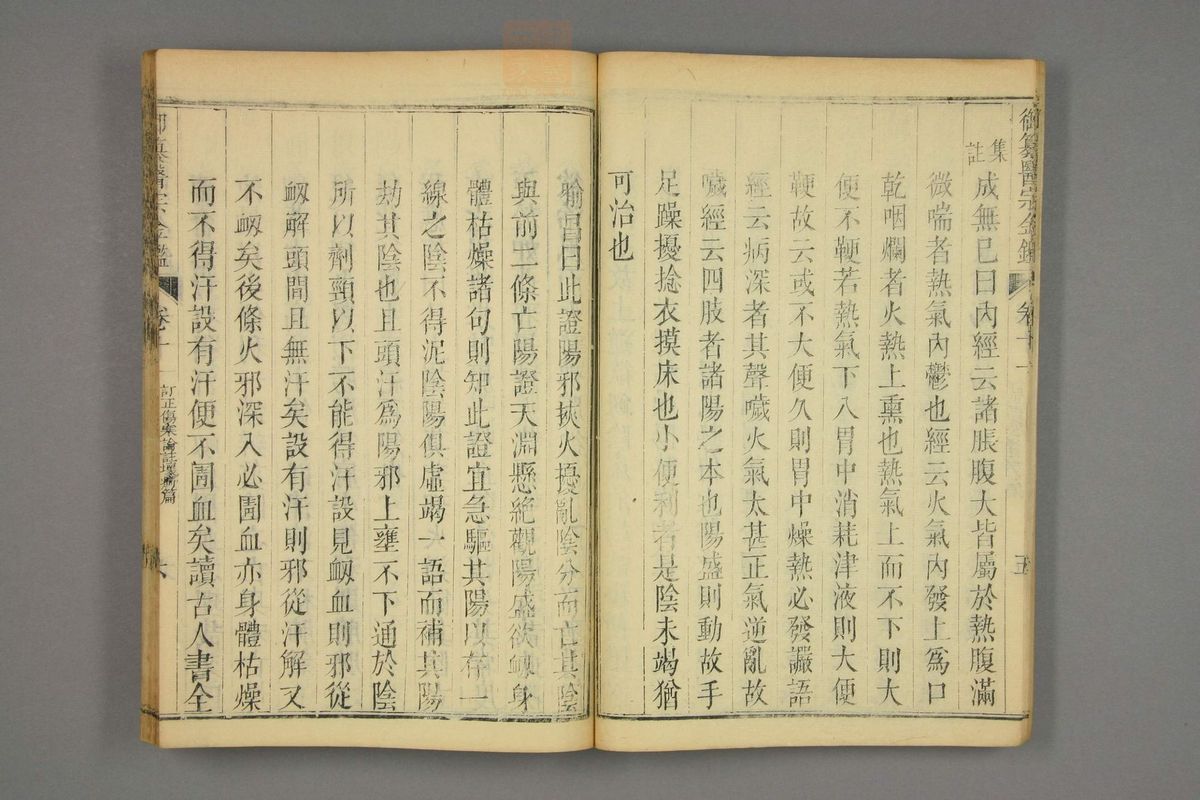 御纂醫宗金鑑 卷十一 五
集註
成無已曰內經云諸脹腹大皆屬於熱腹滿
微喘者熱氣內鬱也經云火氣內發上為口
乾咽爛者火熱上熏也熱氣上而不下則大
便不鞕若熱氣下入胃中消耗津液則大便
鞕故云或不大便久則胃中燥熱必發讝語
經云病深者其聲噦火氣太甚正氣逆亂故
噦經云四肢者諸陽之本也陽盛則動故手
足躁擾捻衣摸床也小便利者是陰未竭猶
可治也
喻昌曰此證陽邪挾火擾亂陰分而亡其陰
與前二條亡陽證天淵懸絕觀陽盛欲衂身
體枯燥諸句則知此證宜急驅其陽以存一
線之陰不得泥陰陽俱虛竭一語而補其陽
劫其陰也且頭汗為陽邪上壅不下通於陰
所以劑頸以下不能得汗設見衂血則邪從
衂解頭間且無汗矣設有汗則邪從汗解又
不衂矣後條火邪深入必圊血亦身體枯燥
而不得汗設有汗便不圊血矣讀古人書全
御纂醫宗金鑑 卷十一 訂正傷寒論註壞病篇 六